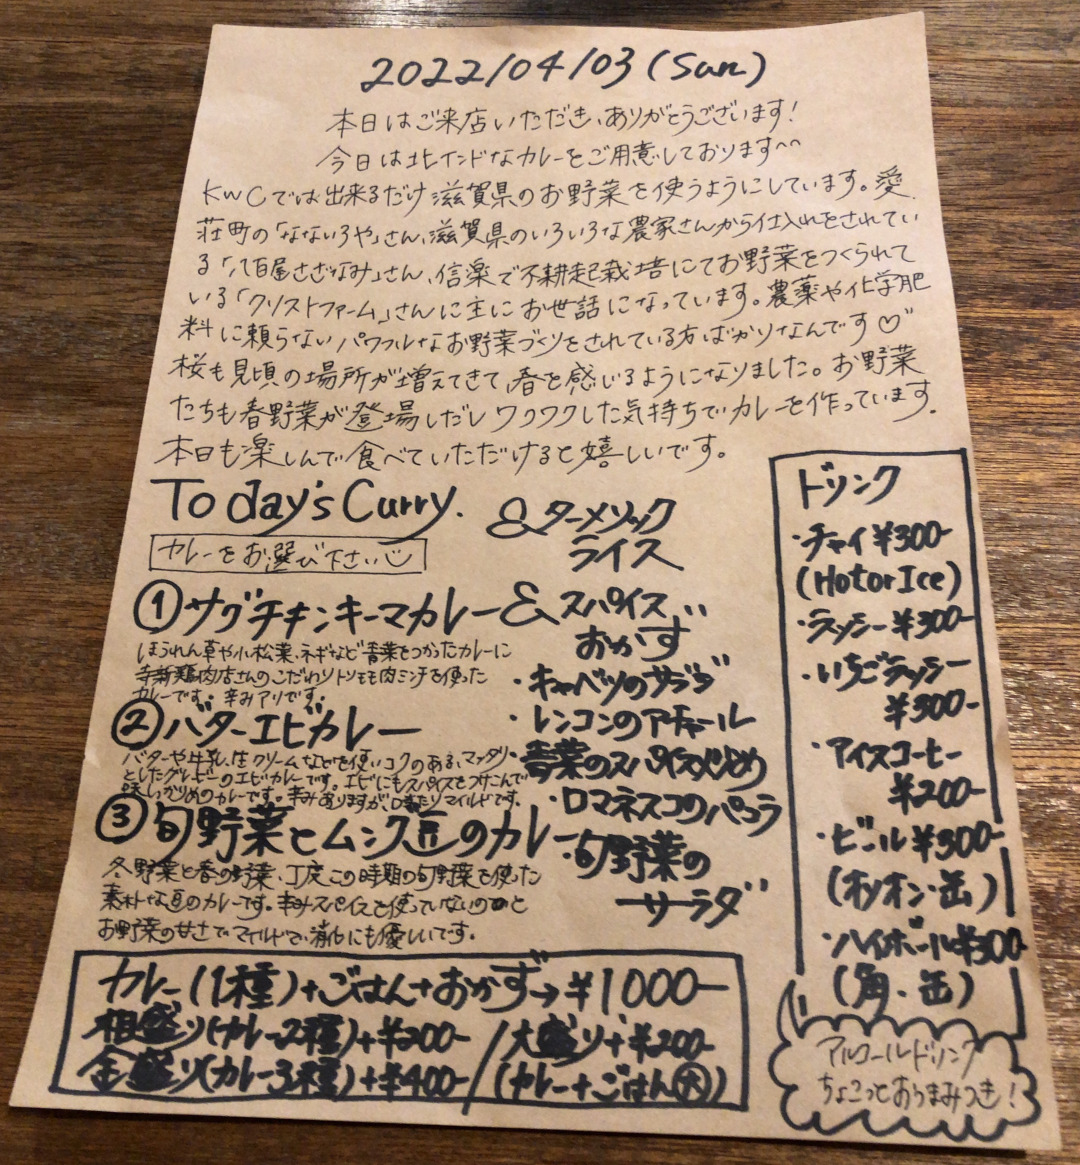 2022/04/03(Sun)
本日はご来店いただき、ありがとうございます!
今日は北インドなカレーをご用意しております〜
KWCでは出来るだけ滋賀県のお野菜を使うようにしています。愛
荘町の「なないろや」さん、滋賀県のいろいろな農家さんから仕入れをされてい
る「八百屋さざなみ」さん、信楽で不耕起栽培にてお野菜をつくられて
いる「クリストファーム」さんに主にお世話になっています。農薬や化学肥
料に頼らないパワフルなお野菜づくりをされている方ばかりなんです♡
桜も見頃の場所が増えてきて、春を感じるようになりました。お野菜
たちも春野菜が登場しだしワクワクした気持ちでカレーを作っています。
本日も楽しんで食べていただけると嬉しいです。
Today's Curry.
カレーをお選び下さい
①サグチキンキーマカレー
ほうれん草や小松菜、ネギなど青菜をつかったカレーに
寺新鶏肉店さんのこだわりトリモモ肉ミンチを使った
カレーです。辛みアリです。
②バターエビカレー
バターや牛乳、生クリームなどを使いコクのある、マッタリ
としたグレービーのエビカレーです。エビにもスパイスをつけこんで
味しっかりめのカレーです。辛みありますが口あたりマイルドです。
③旬野菜とムング豆のカレー
冬野菜と春の野菜、丁度この時期の旬野菜を使った
素朴な豆のカレーです。辛みスパイスを使っていないのと
お野菜の甘さでマイルドで、消化にも優しいです。
&ターメリック
ライス
&スパイス
おかず
・キャベツのサブジ
・レンコンのアチャール
・青菜のスパイス炒め
・ロマネスコのパコラ
・旬野菜の
サラダ
カレー(1種)+ごはん+おかず→¥1000-
相盛り(カレー2種)+¥200-/大盛り+¥200-
全盛り(カレー3種)+¥400-/(カレー+ごはん大)
ドリンク
・チャイ¥300-
(HotorIce)
・ラッシー¥300-
・いちごラッシー
¥300-
・アイスコーヒー
¥200-
・ビール¥300-
(オリオン・缶)
・ハイボール¥300-
(角・缶)
アルコールドリンク
ちょこっとおつまみつき!